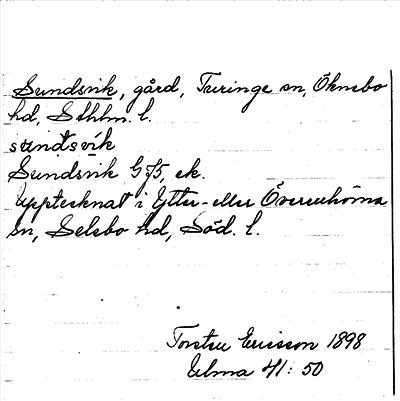 Sundsvik, gård, Turinge sn, Öknebo
hd, Sthlm. l.
sùndsvík
Sundsvik G75, ek.
Upptecknat i Ytter- eller Överenhörna
sn, Selebo hd, Söd. l.
Torsten Ericsson 1898
Elma 41: 50